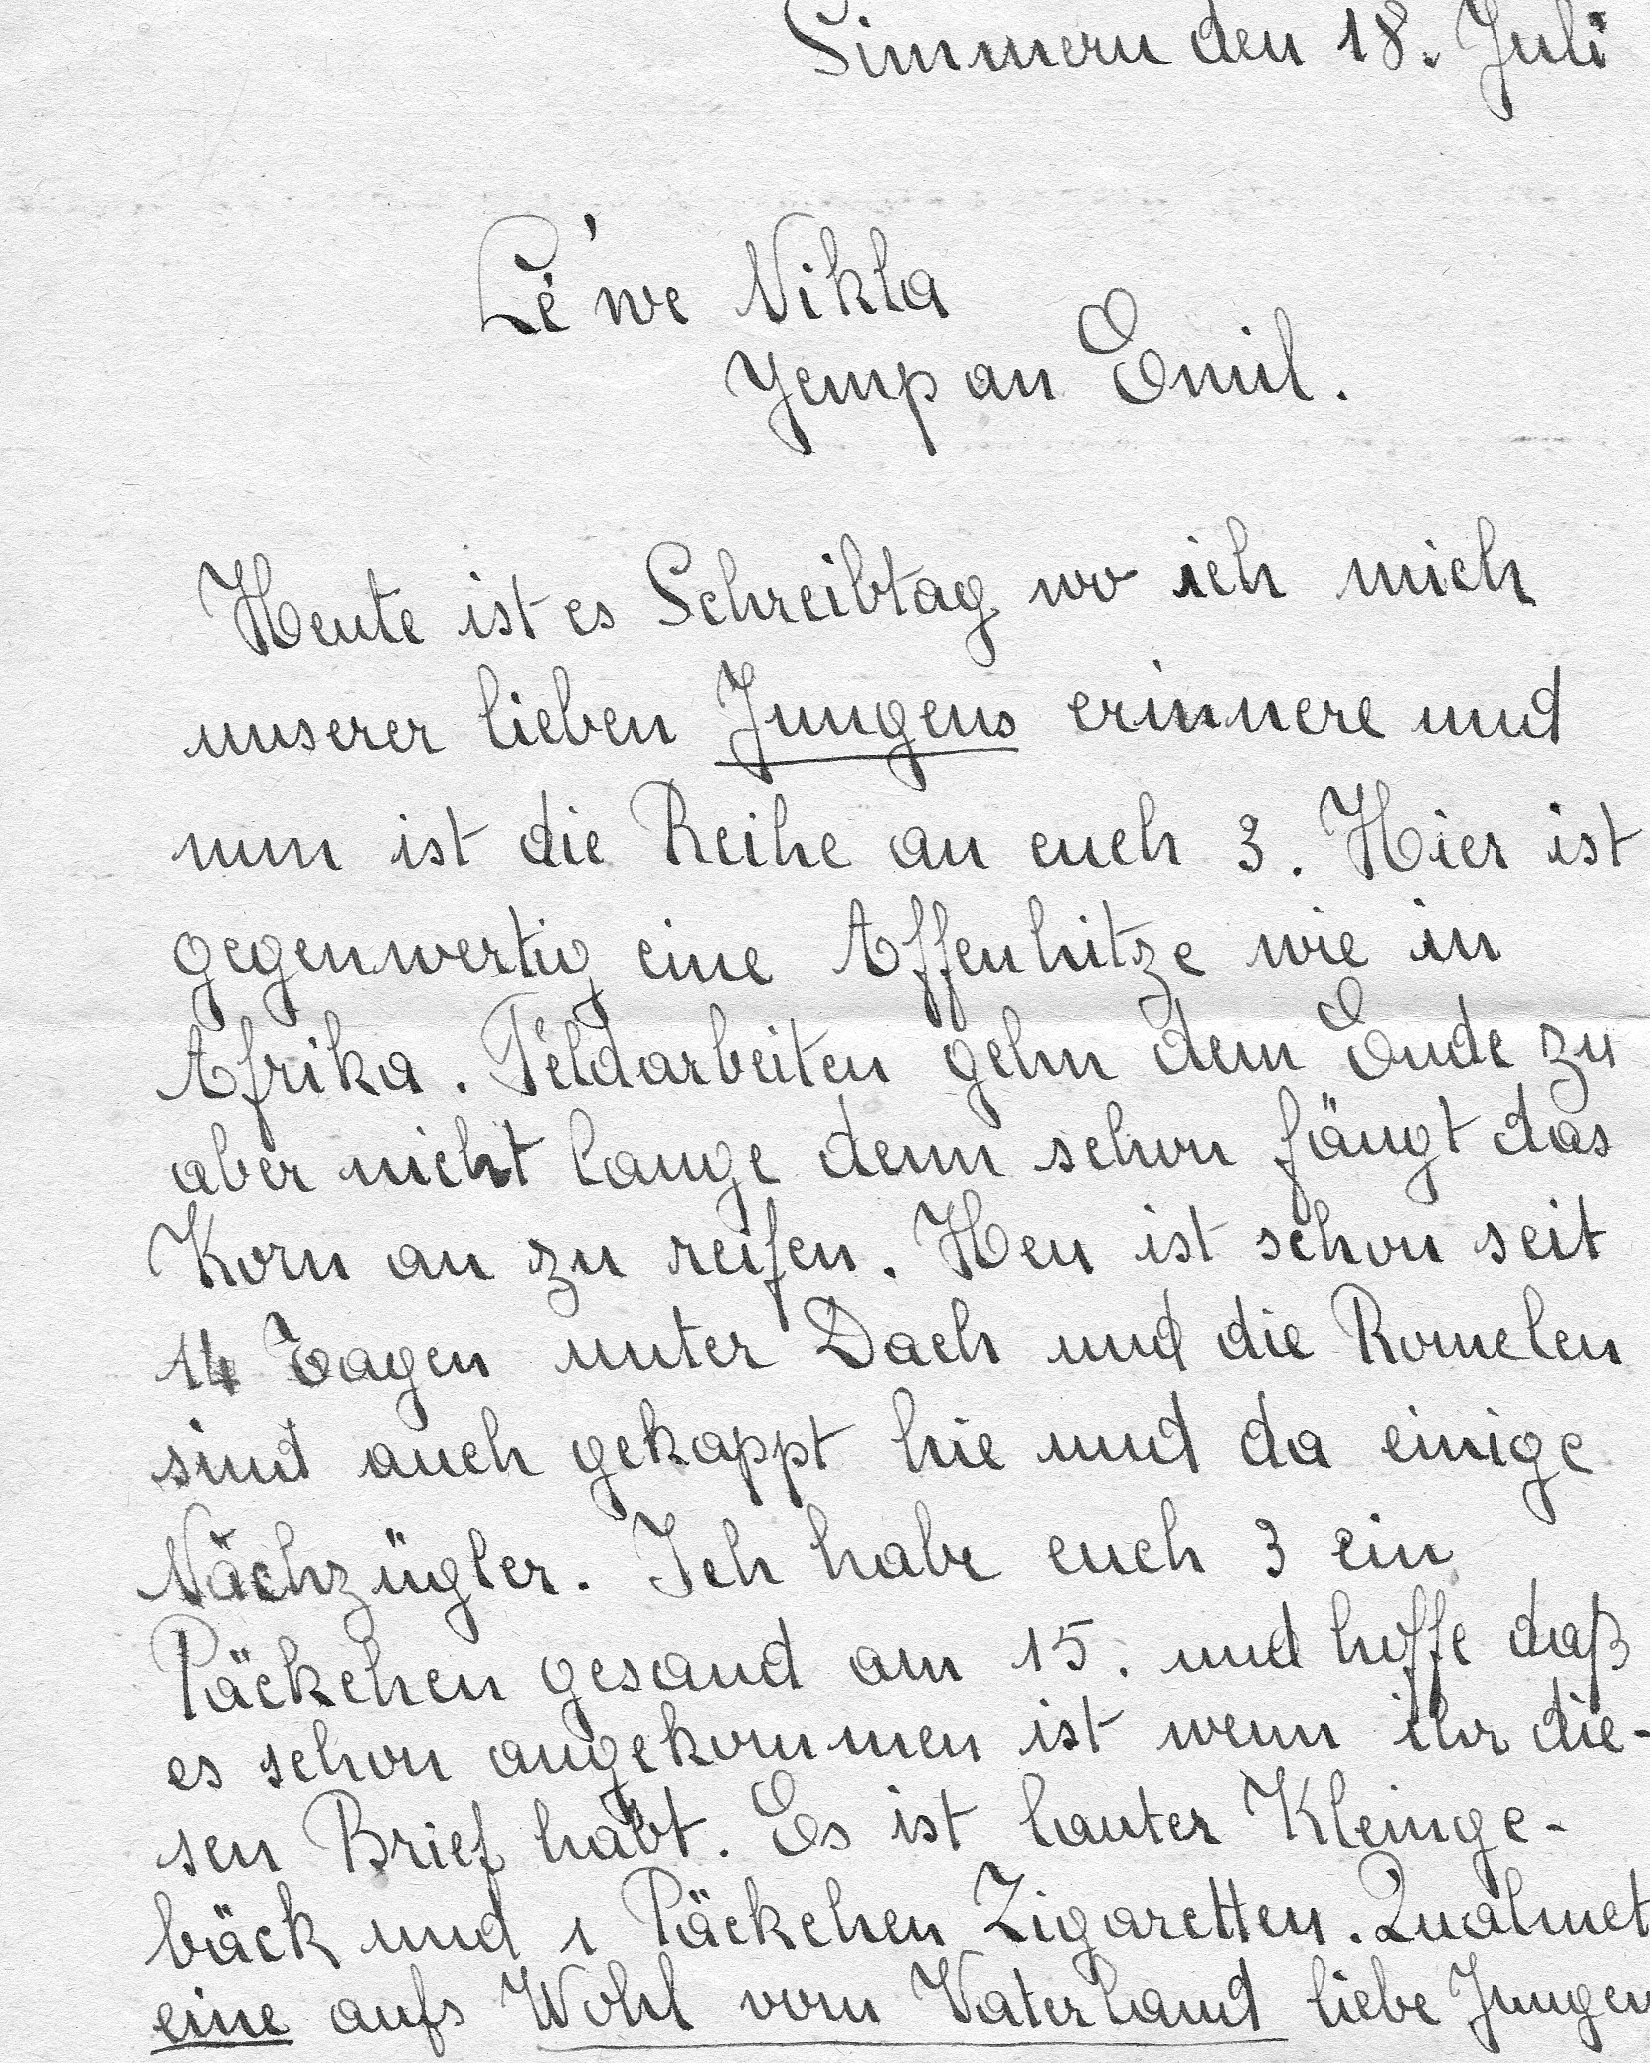 Simmern den 18. Juli
Lé'we Nikla
Jemp an Emil.
Heute ist es Schreibtag wo ich mich
unserer lieben Jungens erinnere und
nun ist die Reihe an euch 3. Hier ist
gegenwertig eine Affenhitze wie in
Afrika. Feldarbeiten gehn dem Ende zu
aber nicht lange denn schon fängt das
Korn an zu reifen. Heu ist schon seit
14 Tagen unter Dach und die Romelen
sind auch gekappt hie und da einige
Nachzügler. Ich habe euch 3 ein
Päckchen gesand am 15. und hoffe daß
es schon angekommen ist wenn ihr die-
sen Brief habt. Es ist lauter Kleinge-
bäck und 1 Päckchen Zigaretten. Qualmet
eine aufs Wohl vom Vaterland liebe Jungen